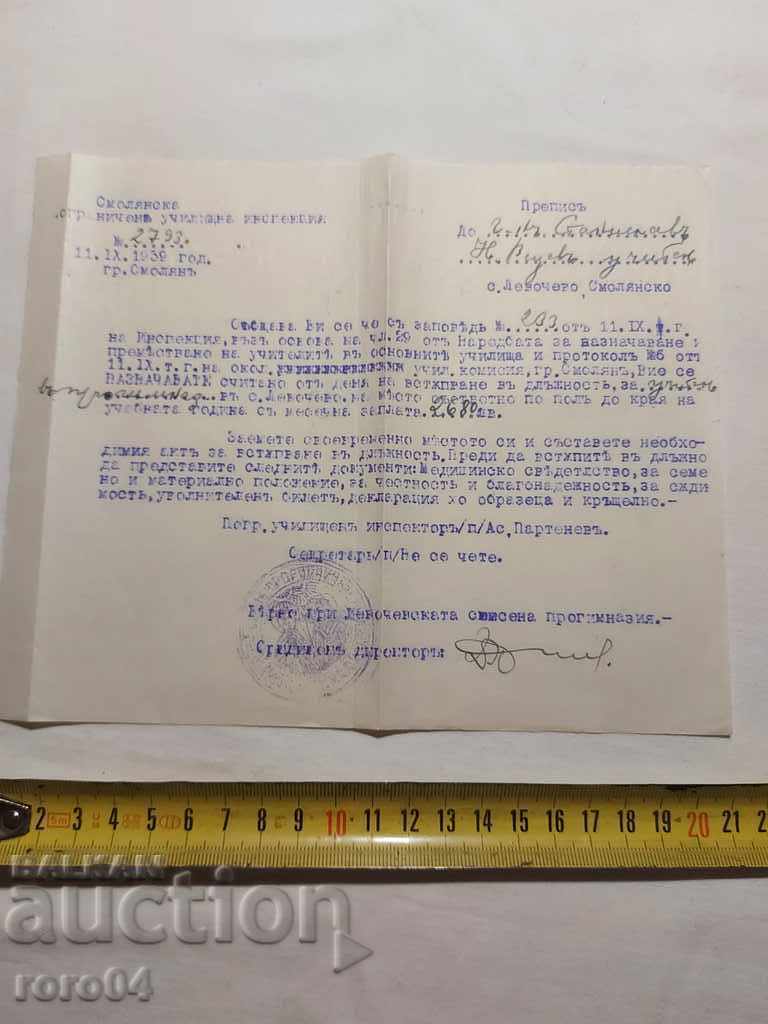 Смолянска
ограничена училищна инспекция
№ 2793
11.IX.1939 год.
гр.Смолянъ
Преписъ
До
с.Левочево, Смолянско
Съобщава Ви се че съ заповѣдь № 293 отъ 11.IX.т.г.
на Инспекция, въз основа на чл.29 отъ Наредбата за назначаване и
премѣстване на учителитѣ въ основнитѣ училища и протоколъ №6 отъ
11.IX.т.г. на окол. учил. комисия, гр.Смолянъ, Вие се
НАЗНАЧАВАТЕ считано отъ деня на встѫпване въ длъжность, за
въ с.Левочево, на мѣсто съответно по полъ до края на
учебната година съ месечна заплата 2680 лв.
Заемете своевременно мѣстото си и съставете необхо-
димия актъ за встѫпване въ длъжность. Преди да встѫпите въ длъжно
да представите следнитѣ документи: Медицинско свѣдетлство, за семе
но и материално положение, за честность и благонадежность, за сѫди
мость, уволнителенъ билетъ, декларация хо образеца и кръщелно.-
Погр. училищенъ инспекторъ/п/Ас, Партеневъ.
Секретарь/п/Не се чете.
Вѣрно при Левочевската смѣсена прогимназия.-
директоръ:
2 3 4 5 6 7 8 9 10 11 12 13 14 15 16 17 18 19 20 21 2
5m
BALKAN
auction
roro04